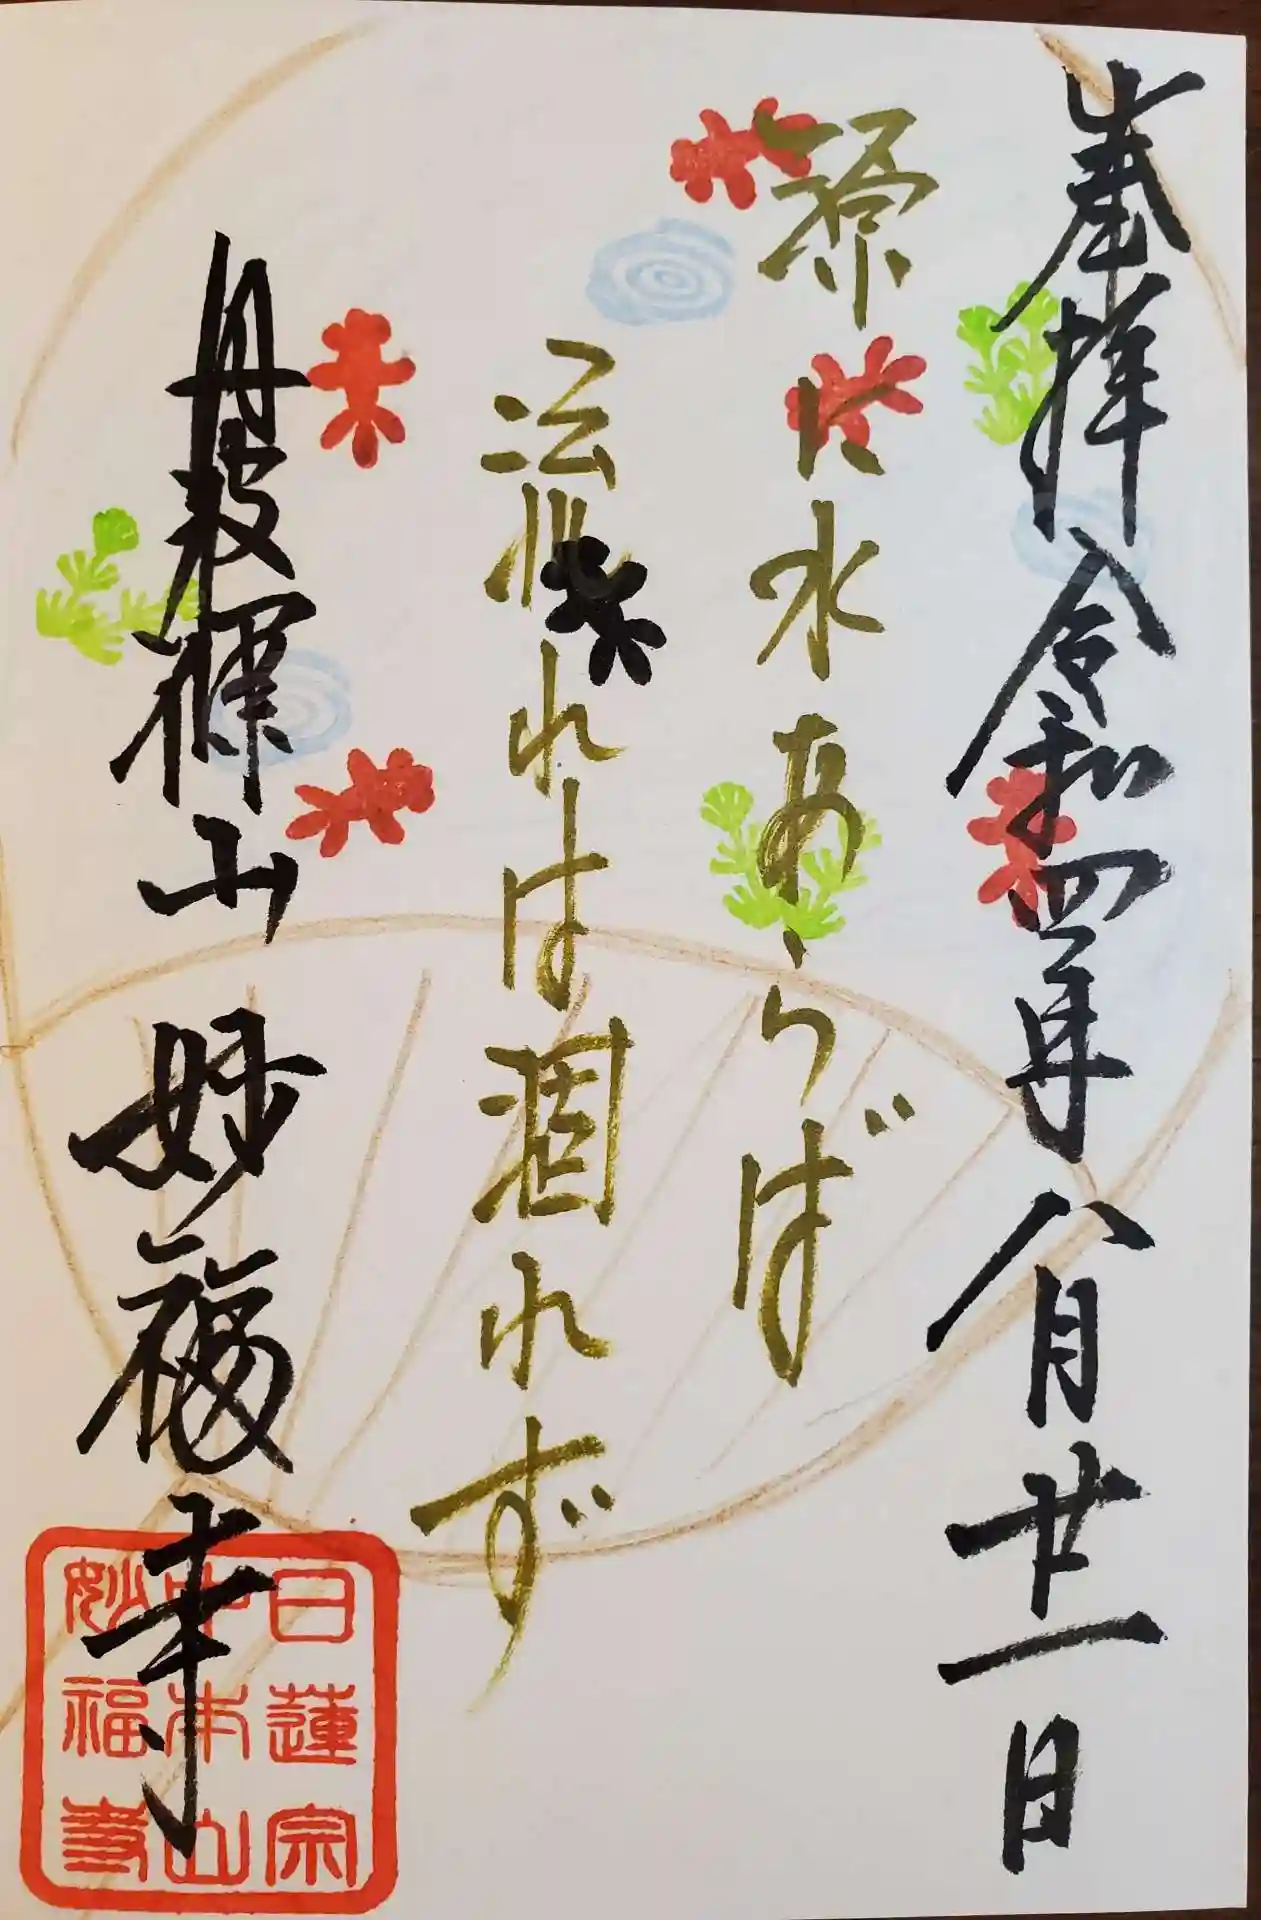 奉拝 令和四年八月廿一日
源に水あらば
流れは涸れず
丹波 山 妙福寺
日蓮宗
中本山
妙福寺